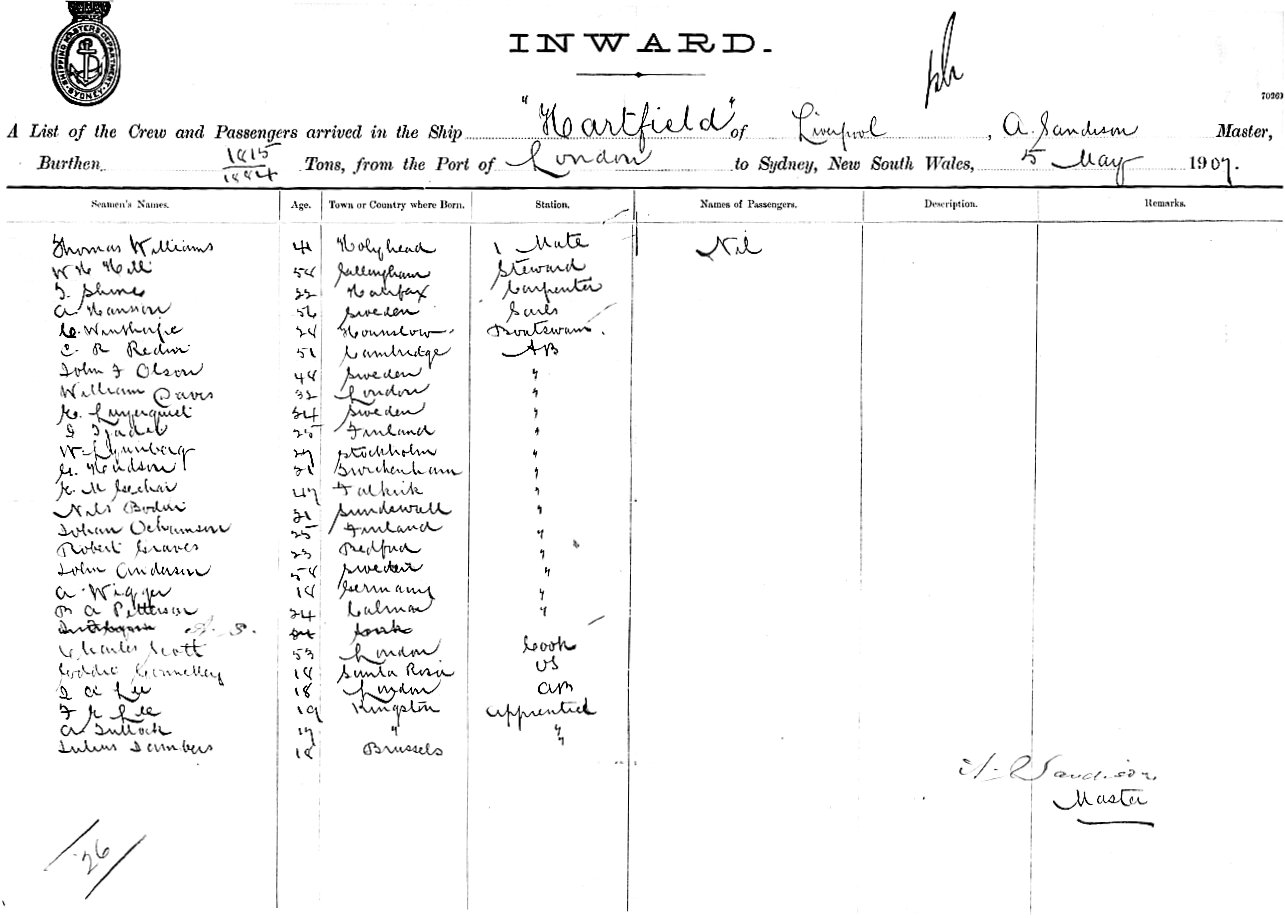 SHIPPING MASTERS DEPARTMENT. SYDNEY.
INWARD.
70269
A List of the Crew and Passengers arrived in the Ship "Hartfield" of Liverpool, A. Sandison Master,
Burthen 1815/1884 Tons, from the Port of London to Sydney, New South Wales, 5 May 1907.
Seamen's Names. Age. Town or Country where Born. Station. Names of Passengers. Description. Remarks.
Thomas Williams 41 Holyhead 1 Mate Nil
W H Hill 54 Gillingham Steward
Shine 22 Halifax Carpenter
A Hanson 56 Sweden Sails
C. Winthorpe 28 Hounslow Boatswain.
C R 51 Cambridge AB
John F Olson 48 Sweden "
William Davis 32 London "
24 Sweden "
25 Finland "
W 27 Stockholm "
G. Hewdson 21 Twickenham "
47 Falkirk "
Nils Bodin 21 Sundswall "
Johan 25 Finland "
Robert Graves 23 Bedford "
John Anderson 58 Sweden "
A. Wigger 18 Germany "
B A Petterson 24 Calmar "
Charles Scott 53 London Cook
Connelley 18 Santa Rosa OS
A Lee 18 London
F G Lee 19 Kingston Apprentice
A Tullock 17 " "
Julius Dambers 18 Brussels "
A. Sandison
Master
26